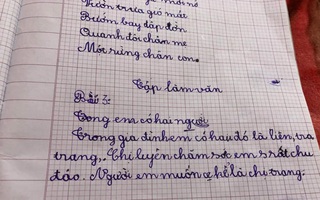 mới nở
Vườn trưa gió mát
Bướm bay dập dờn
Quanh đôi chân mẹ
Một rừng chân con.
Tập làm văn
Bài
Trong em có hai người
Trong gia đình em có hau đó là liên, tra
trang,. Chi luyên chăm sơ em s rất chu
đáo. Người em muốn ể là chi trang.